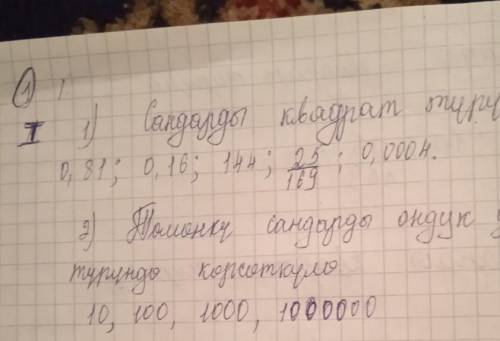 ① I
I 1) Сандарды квадрат туру
0,81; 0,16; 144; 25/169; 0,0004.
2) Томонку сандарды ондук
турундо корсоткуло
10, 100, 1000, 1000000